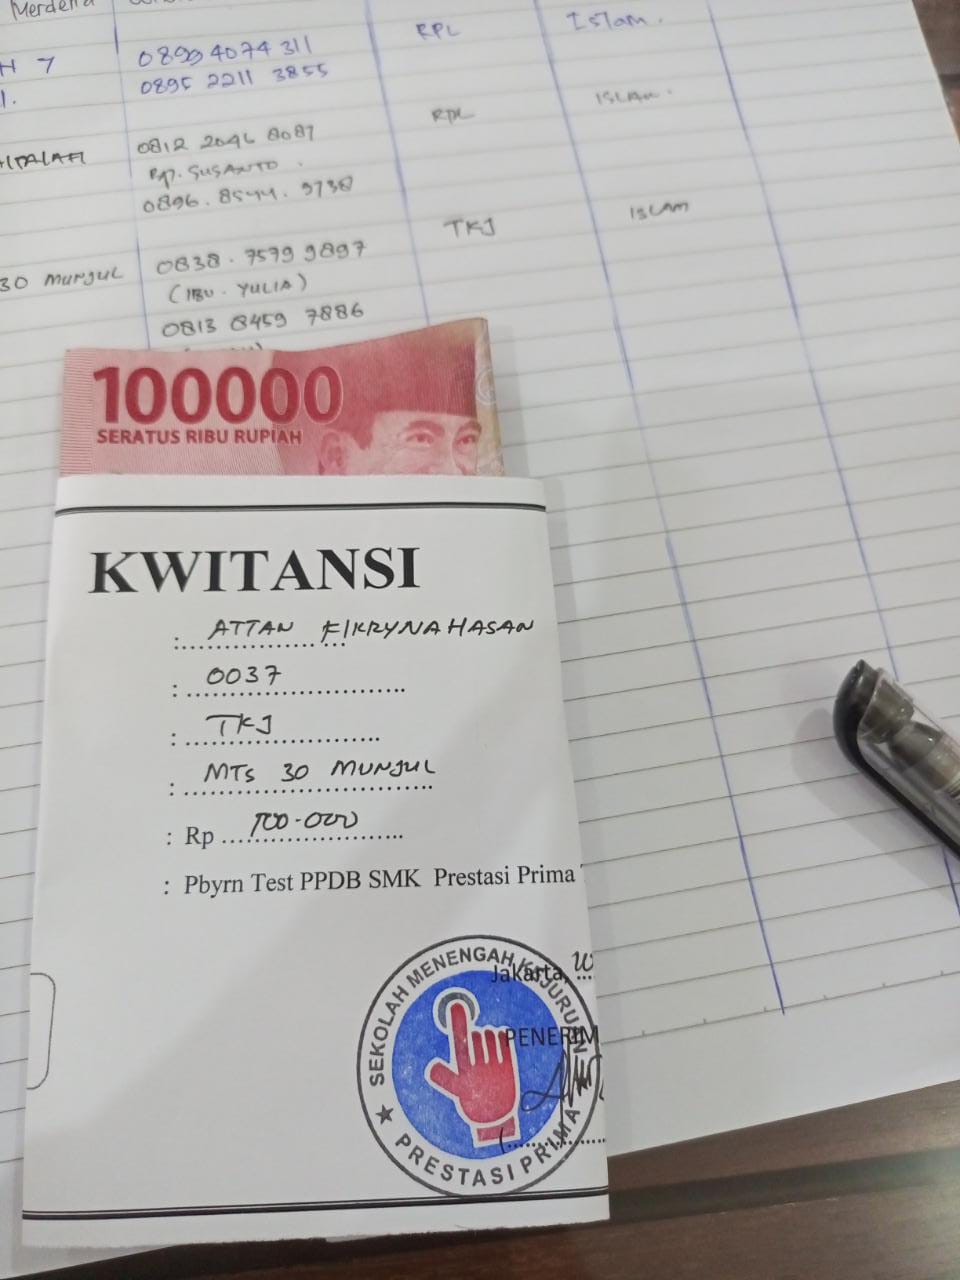 Merdeka
H 7
08994074311
RPL
Islam.
1.
0895 2211 3855
0812 2046 8087
RPL
ISLAM.
Bp. SUSANTO.
0896. 8544. 9738
30 MUNJUL
0838. 7579 9897
TKJ
ISLAM
(IBU. YULIA)
0813 8459 7886
100000
SERATUS RIBU RUPIAH
KWITANSI
: ATTAN FIKRYNAHASAN
: 0037
: TKJ
: MTs 30 MUNJUL
: Rp 100.000
: Pbyrn Test PPDB SMK Prestasi Prima
Jakarta,
PENERIM
SEKOLAH MENENGAH KEJURUAN
PRESTASI PRIMA